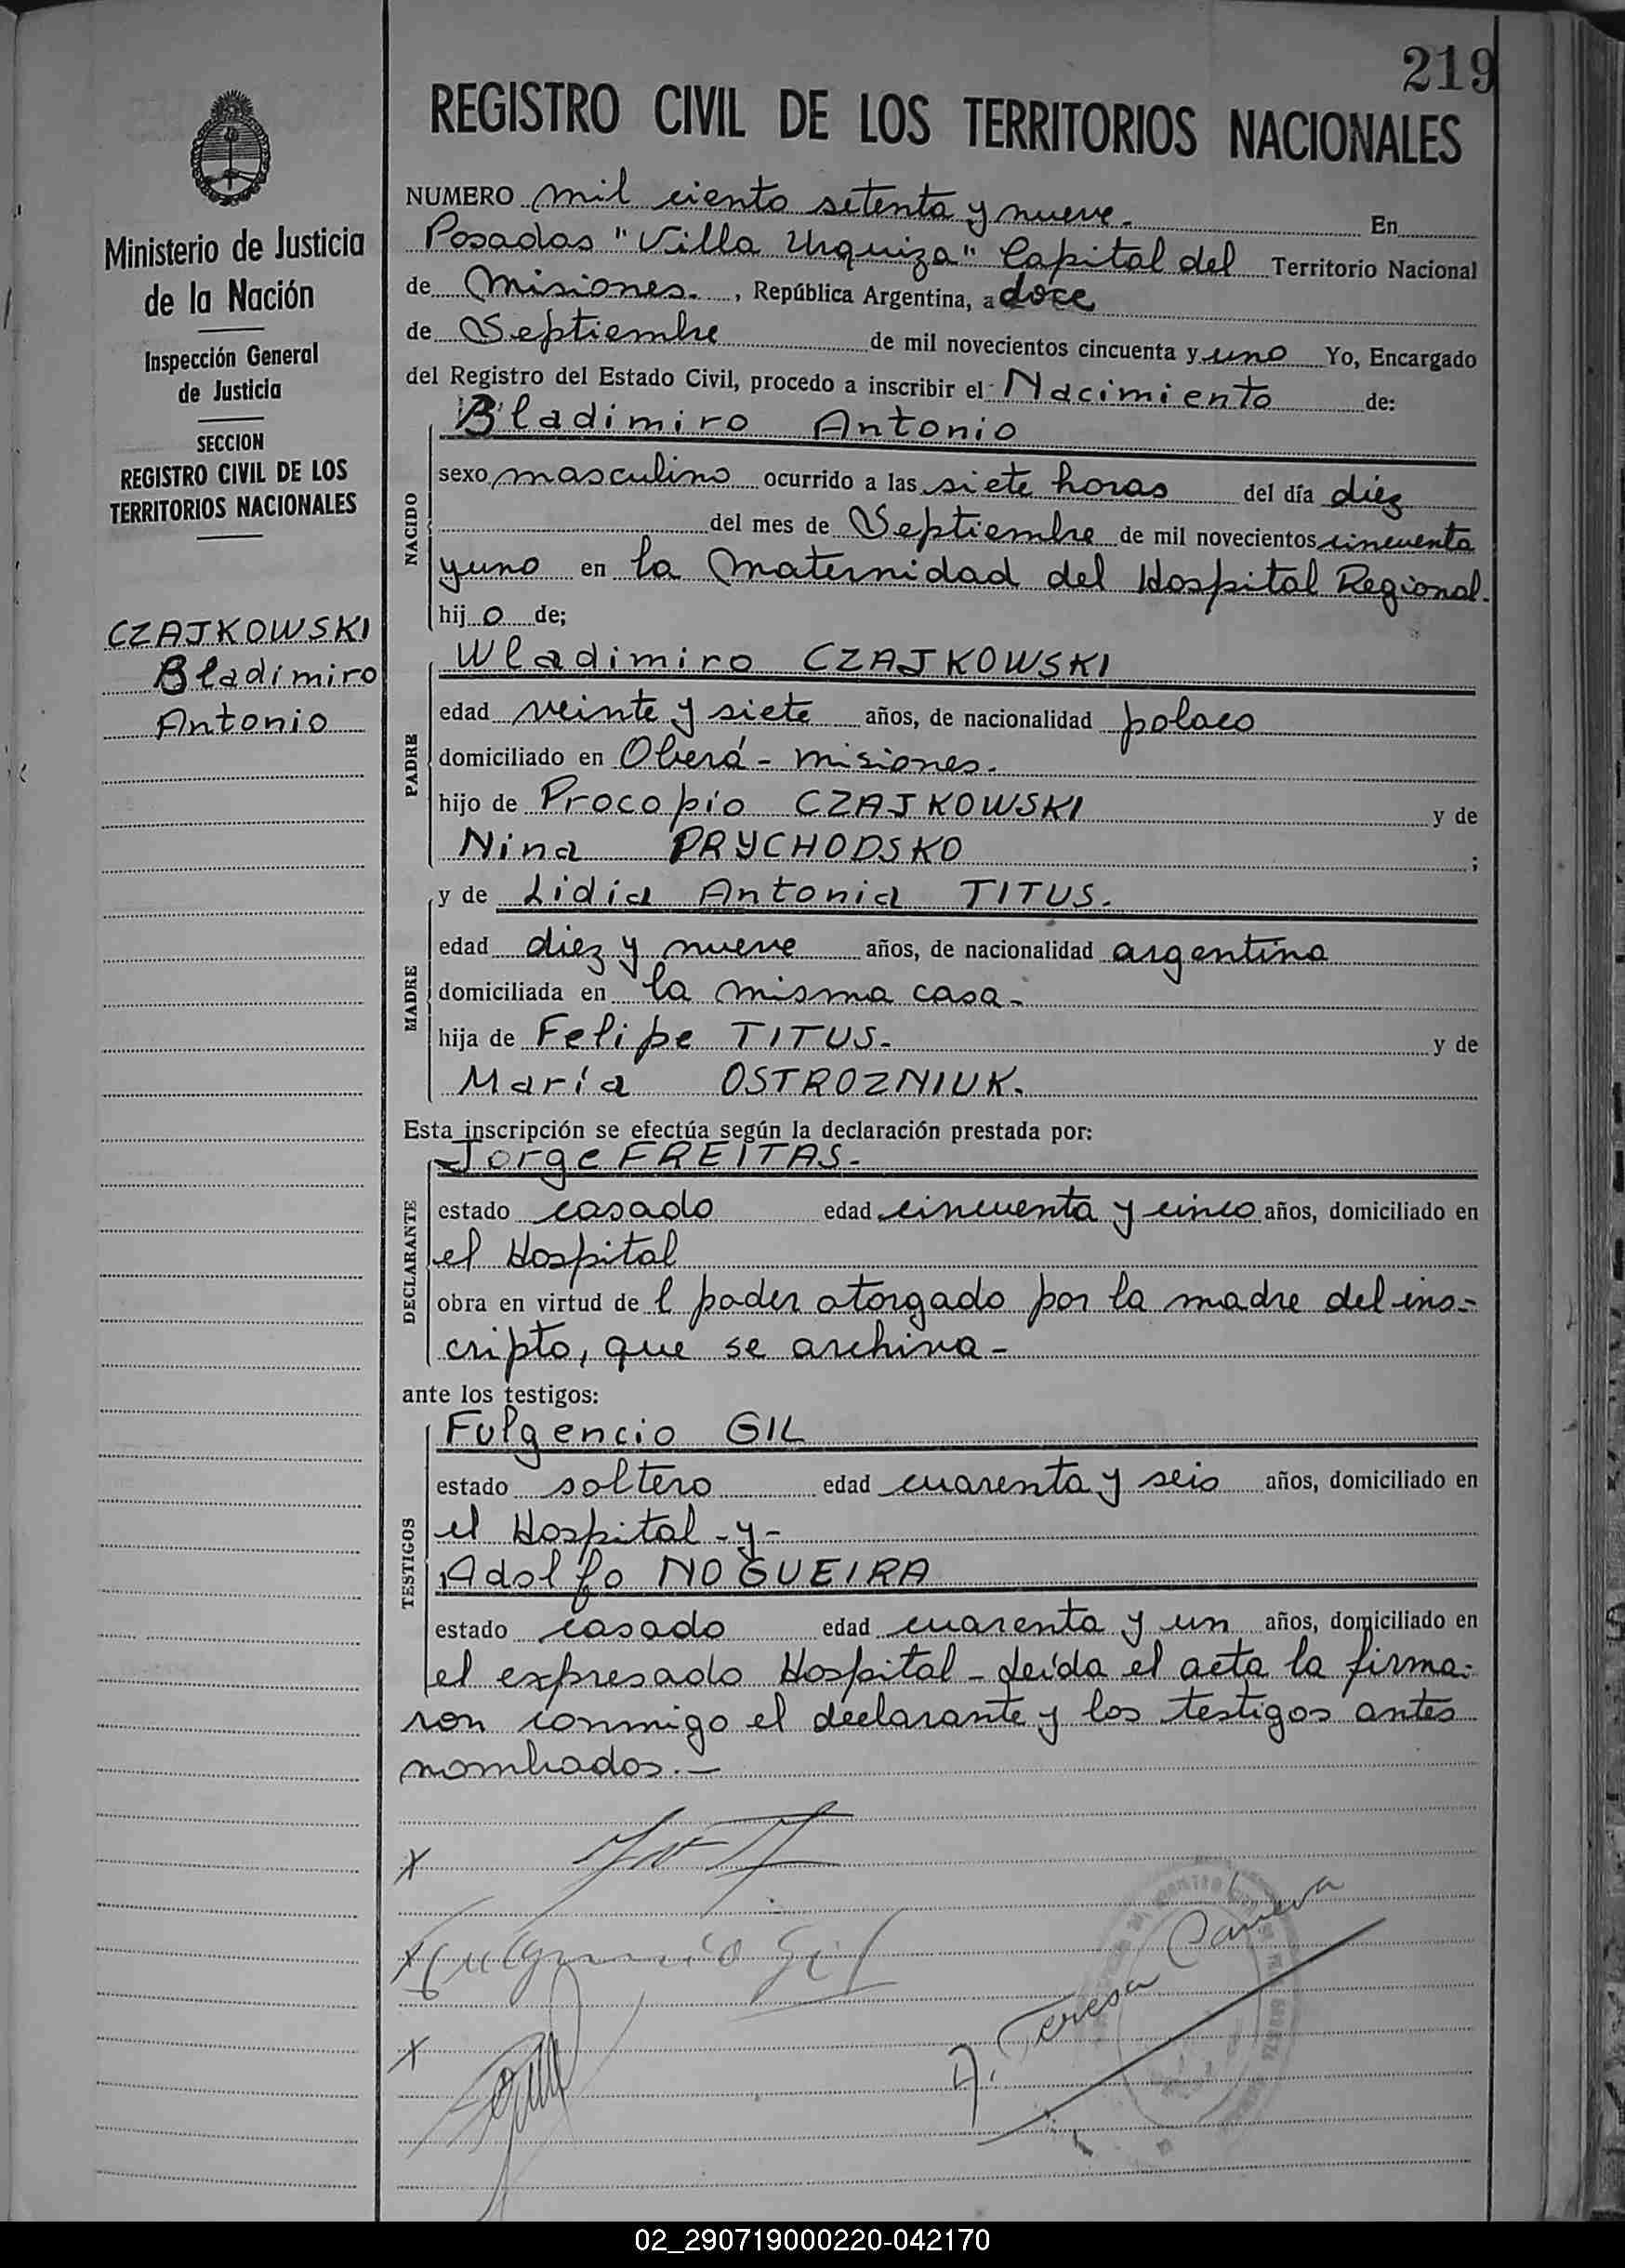 219
REGISTRO CIVIL DE LOS TERRITORIOS NACIONALES
Ministerio de Justicia
de la Nación
Inspección General
de Justicia
SECCION
REGISTRO CIVIL DE LOS
TERRITORIOS NACIONALES
CZAJKOWSKI
Bladimiro
Antonio
NUMERO mil ciento setenta y nueve. En
Posadas "Villa Urquiza" Capital del Territorio Nacional
de Misiones. , República Argentina, a doce
de Septiembre de mil novecientos cincuenta y uno Yo, Encargado
del Registro del Estado Civil, procedo a inscribir el Nacimiento de:
NACIDO
Bladimiro Antonio
sexo masculino ocurrido a las siete horas del día diez
del mes de Septiembre de mil novecientos cincuenta
y uno en la Maternidad del Hospital Regional.
hijo de;
PADRE
Wladimiro CZAJKOWSKI
edad veinte y siete años, de nacionalidad polaco
domiciliado en Oberá - Misiones.
hijo de Procopio CZAJKOWSKI y de
Nina PRYCHODSKO ;
MADRE
y de Lidia Antonia TITUS.
edad diez y nueve años, de nacionalidad argentina
domiciliada en la misma casa -
hija de Felipe TITUS. y de
María OSTROZNIUK.
Esta inscripción se efectúa según la declaración prestada por:
DECLARANTE
Jorge FREITAS.
estado casado edad cincuenta y cinco años, domiciliado en
el Hospital
obra en virtud del poder otorgado por la madre del ins-
cripto, que se archiva -
ante los testigos:
TESTIGOS
Fulgencio GIL
estado soltero edad cuarenta y seis años, domiciliado en
el Hospital - y -
Adolfo NOGUEIRA
estado casado edad cuarenta y un años, domiciliado en
el expresado Hospital - Leída el acta la firma-
ron conmigo el declarante y los testigos antes
nombrados. -
x
x Fulgencio Gil
x
A. Teresa
02_290719000220-042170